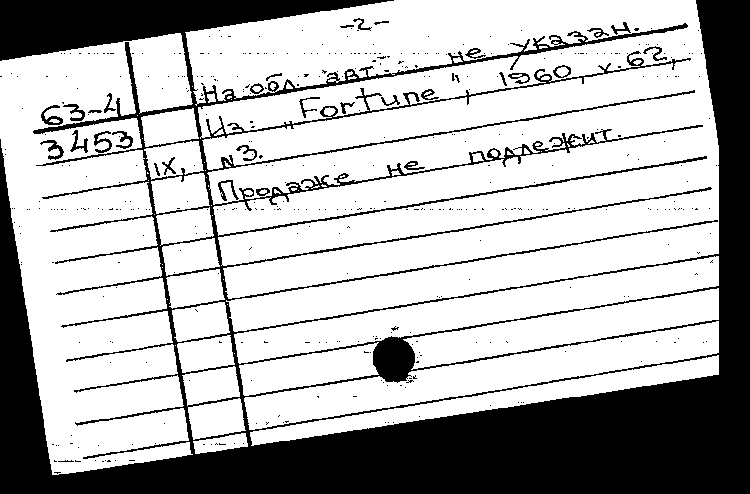 -2-
63-4 На обл. авт. ... не указан.
3453 Из: „Fortune“, 1960, v.62,
IX, N3.
Продаже не подлежит.